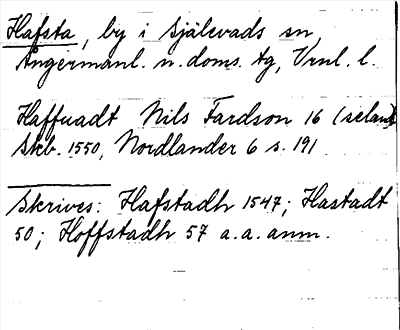 Hafsta, by i Själevads sn,
Ångermanl. n. doms. tg, Vrnl. l.
Haffuadt Nils Fardson 16 (seland)
Skb. 1550, Nordlander 6 s. 191
Skrives: Hafstadh 1547; Hastadt
50; Hoffstadh 57 a. a. anm.